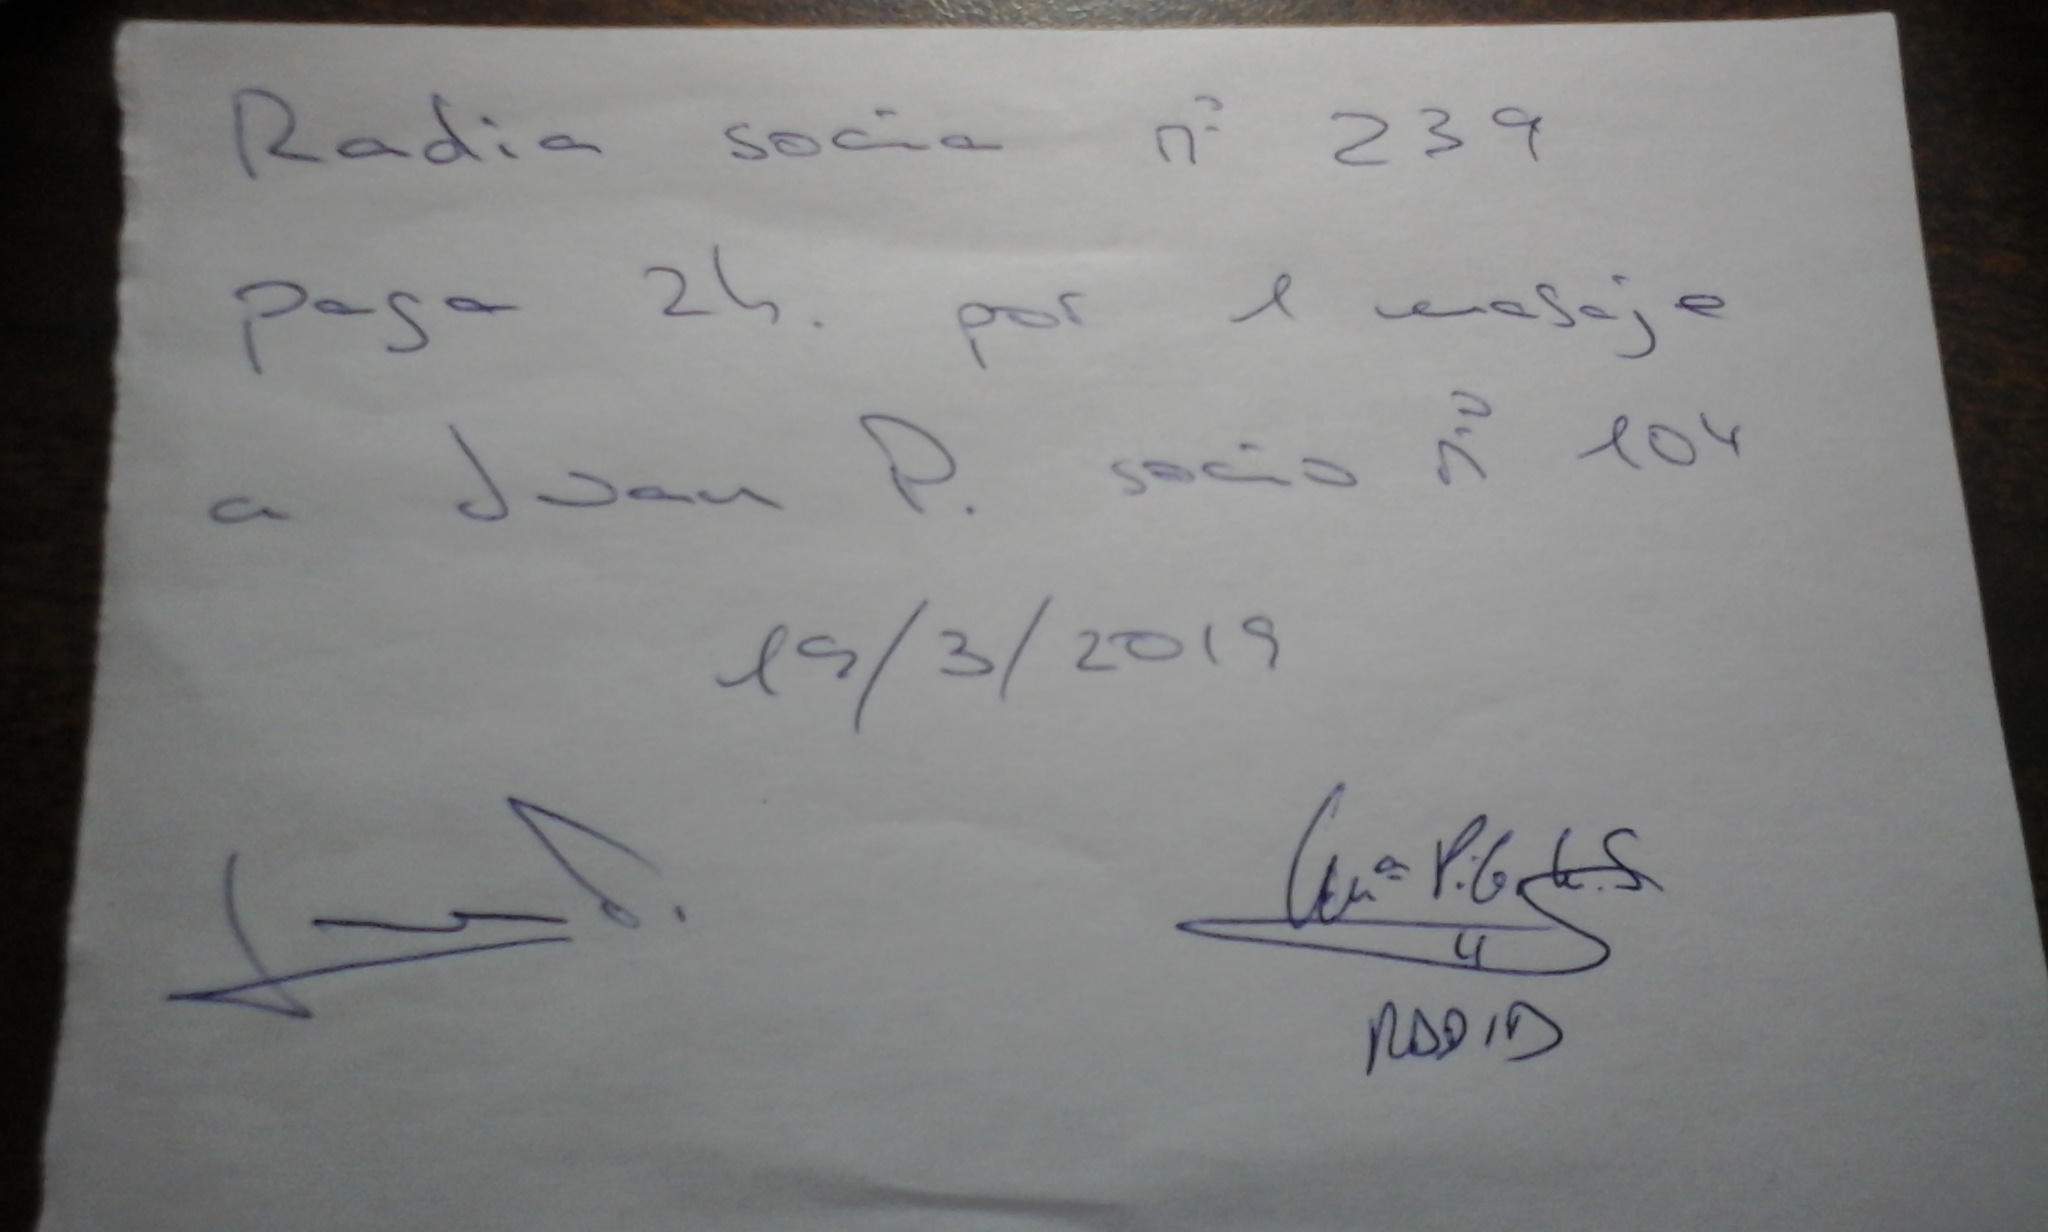 Radia socia nº 239
paga 2h. por 1 masaje
a Juan P. socio nº 104
19/3/2019
RADIA